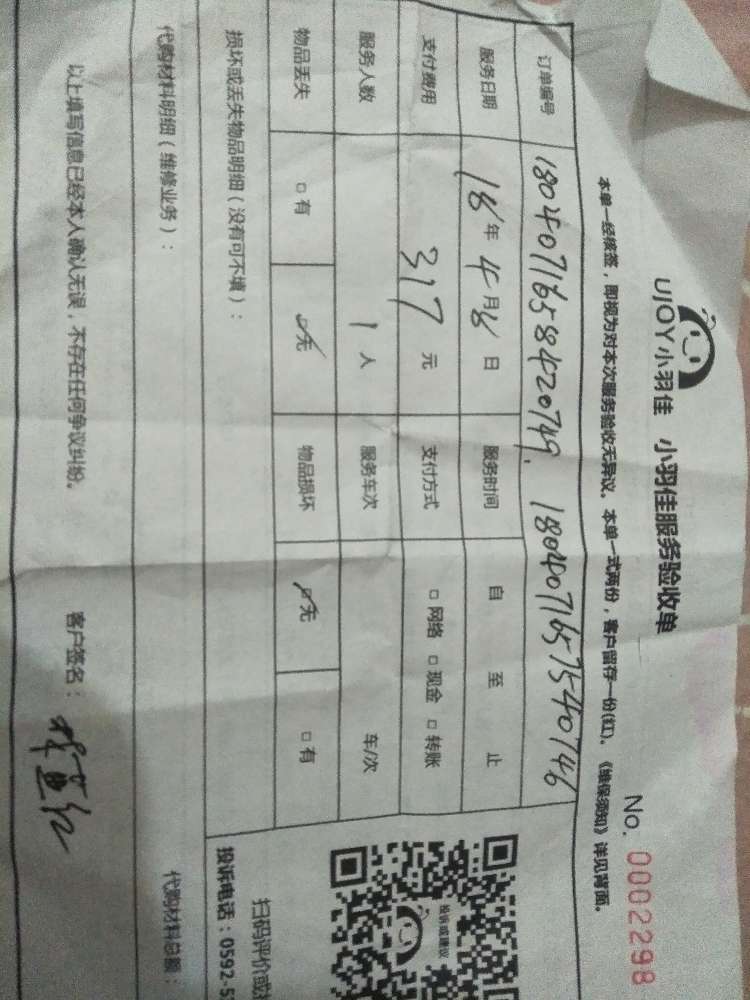 UJOY小羽佳 小羽佳服务验收单
No. 0002298
本单一经核签，即视为对本次服务验收无异议。本单一式两份，客户留存一份(红)。《维保须知》详见背面。
订单编号 1804071658420749. 1804071657540746
服务日期 18年4月8日 服务时间 自 至 止
支付费用 317元 支付方式 □网络 □现金 □转账
服务人数 1人 服务车次 车/次
物品丢失 □有 ☑无 物品损坏 ☑无 □有
损坏或丢失物品明细（没有可不填）：
代购材料明细（维修业务）： 代购材料总额：
以上填写信息已经本人确认无误，不存在任何争议纠纷。 客户签名：
投诉或建议
扫码评价或
投诉电话：0592-5